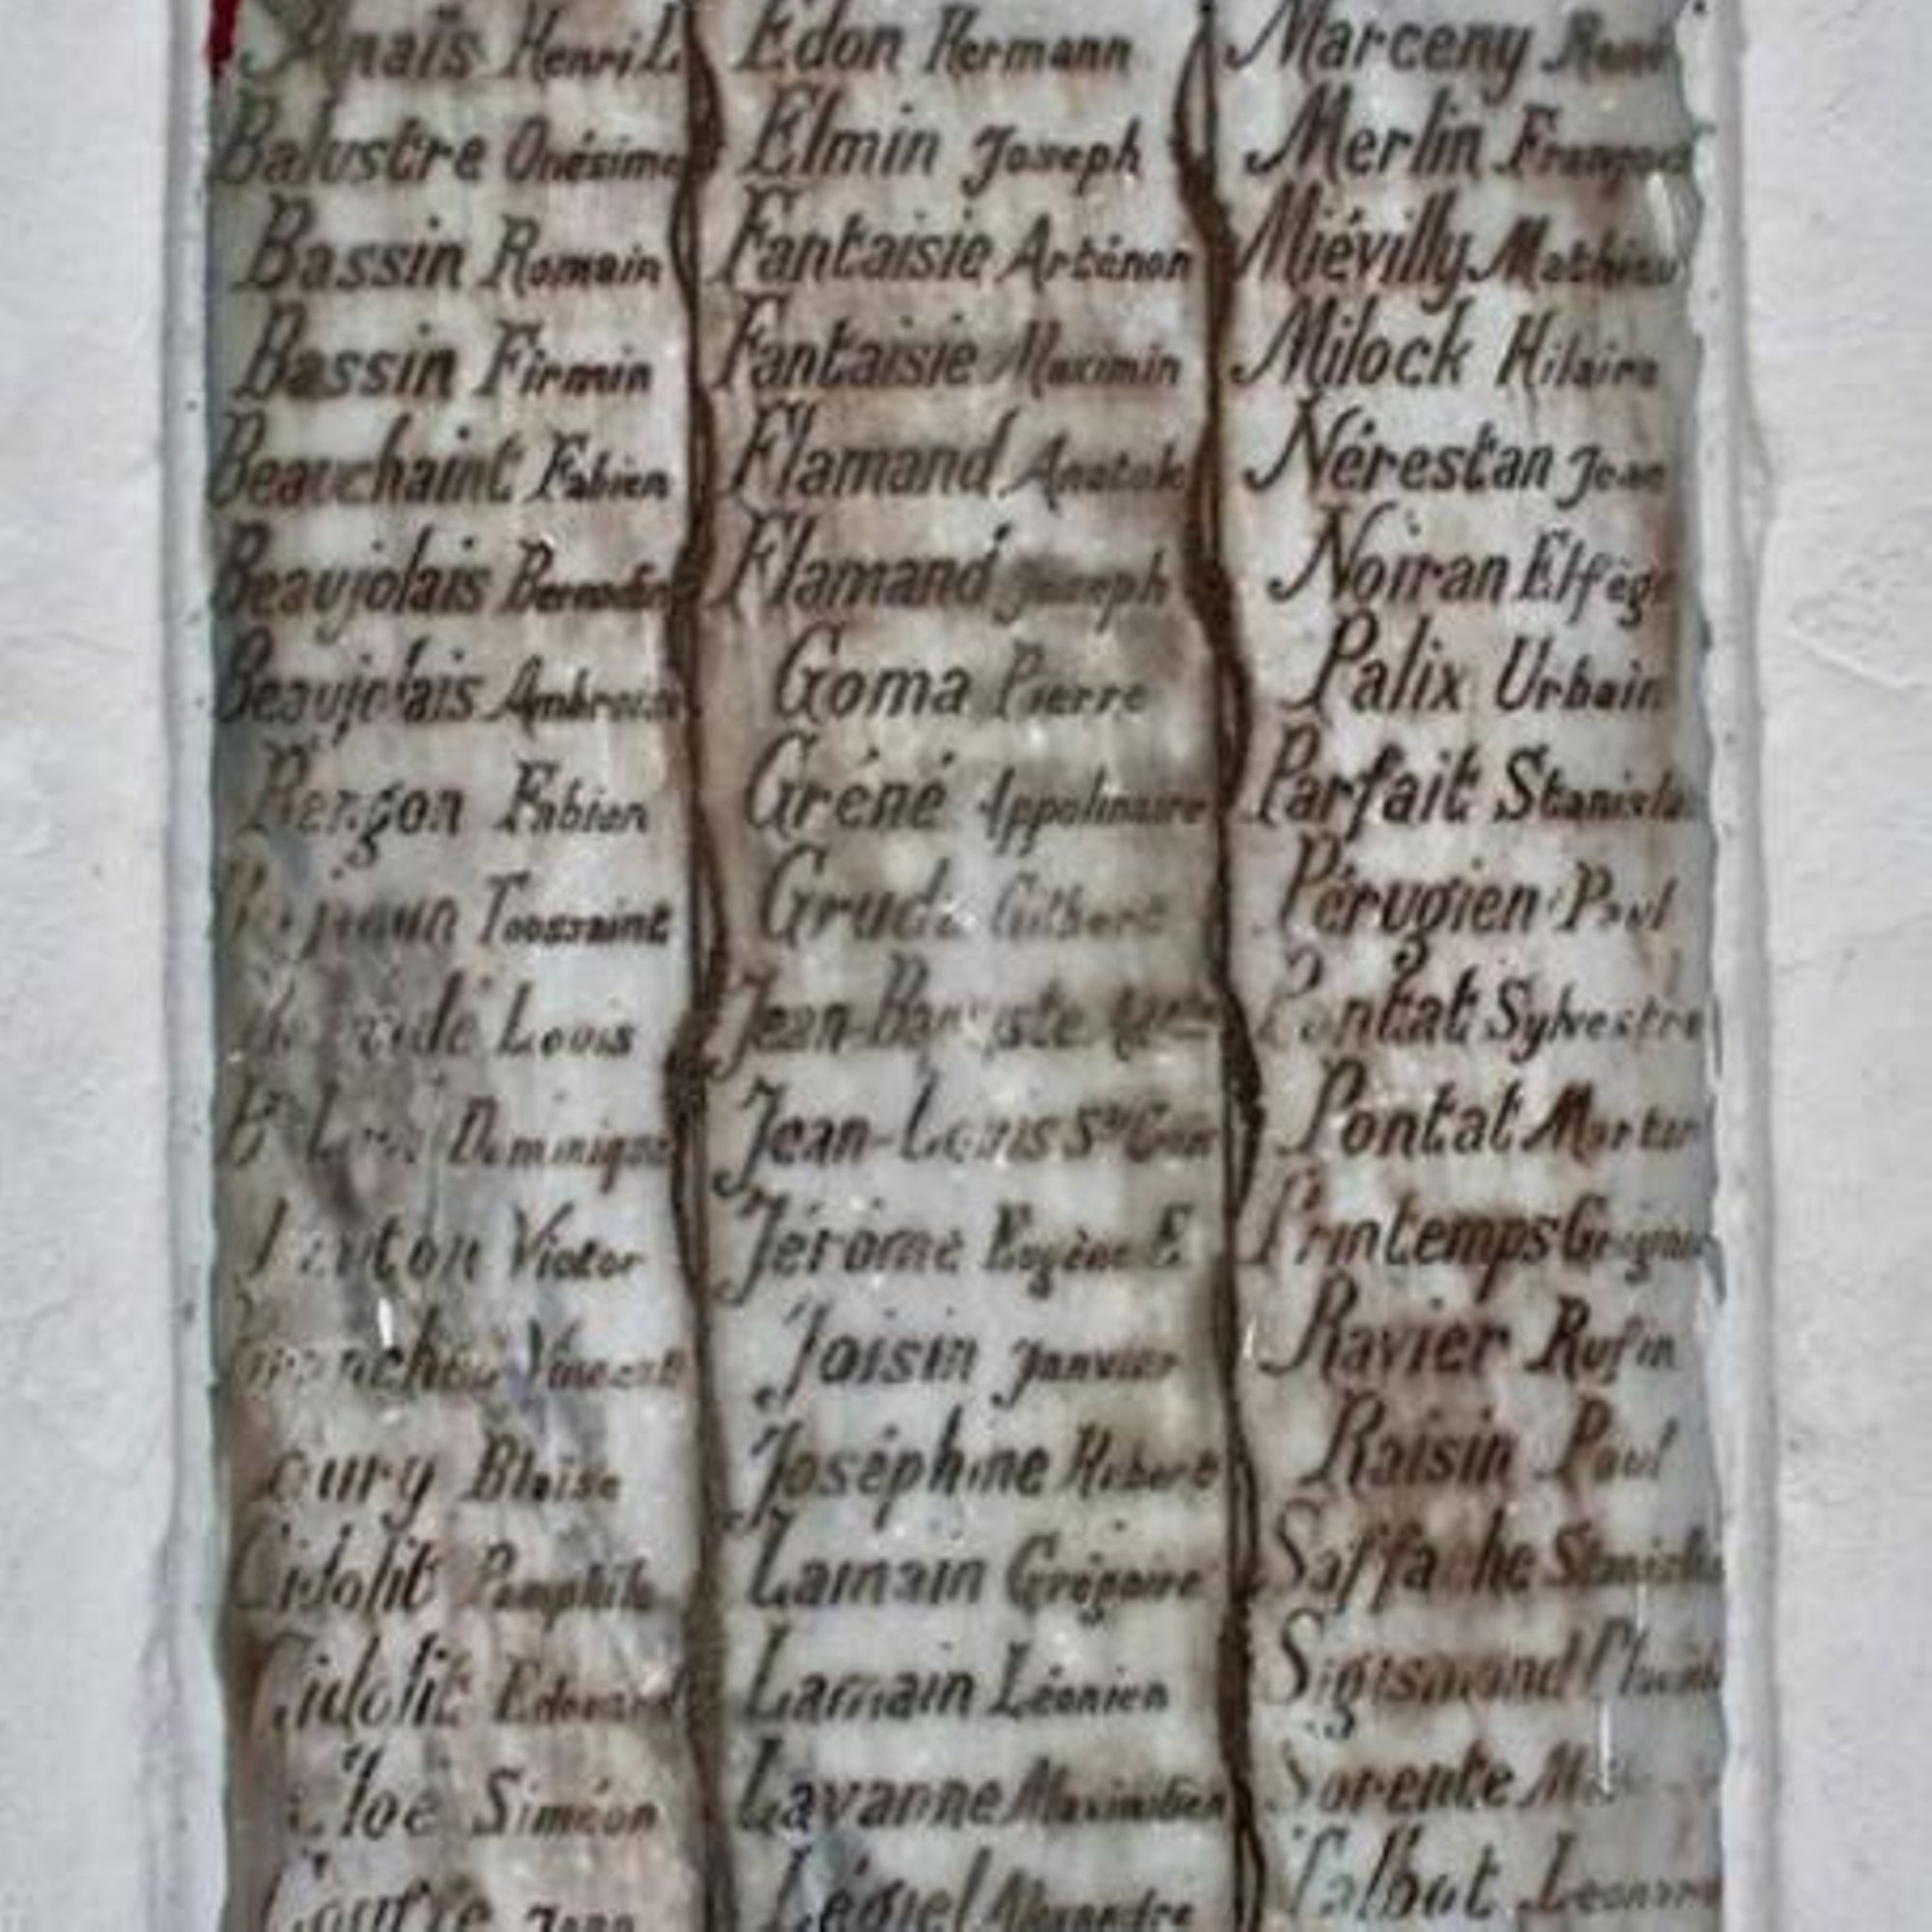 Anaïs Henri L
Balustre Onésime
Bassin Romain
Bassin Firmin
Beauchaint Fabien
Beaujolais
Beaujolais Ambroise
Bergon Fabien
Toussaint
Louis
Dominique
Victor
Vincent
Blaise
Cidolit Pamphile
Cidolit Edouard
Cloé Siméon
Jean
Edon Hermann
Elmin Joseph
Fantaisie Arténon
Fantaisie Maximin
Flamand Anatole
Flamand Joseph
Goma Pierre
Gréné Appolinaire
Grude Gilbert
Jean-Baptiste
Jean-Louis
Jérôme Eugène E
Joisin Janvier
Joséphine Robert
Lamain Grégoire
Lamain Léonien
Lavanne Maximilien
Légiel Alexandre
Marceny René
Merlin François
Miévilly Mathieu
Milock Hilaire
Nérestan Jean
Noiran Elfège
Palix Urbain
Parfait Stanislas
Pérugien Paul
Pontat Sylvestre
Pontat
Printemps
Ravier Rufin
Raisin Paul
Saffache Stanislas
Sigismond
Sorente
Talbot Léonard